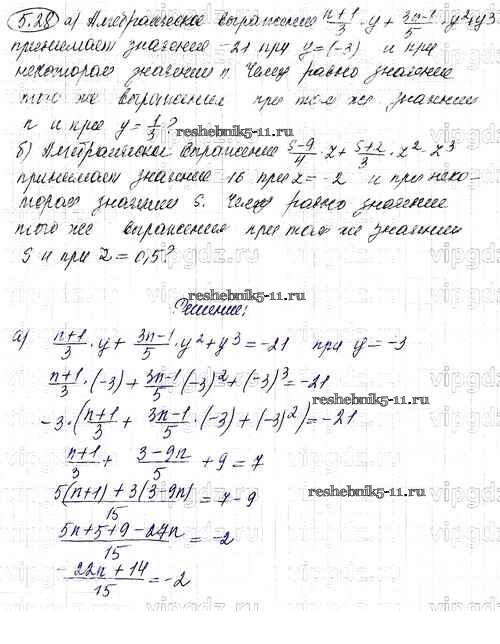 5.28 а) Алгебраическое выражение (n+1)/3 · y + (3n-1)/5 · y² + y³
принимает значение -21 при y = (-3) и при
некотором значении n. Чему равно значение
того же выражения при том же значении
n и при y = 1/3?
reshebnik5-11.ru
б) Алгебраическое выражение (5-9)/4 · z + (5+2)/3 · z² - z³
принимает значение 16 при z = -2 и при неко-
тором значении S. Чему равно значение
того же выражения при том же значении
S и при z = 0,5?
reshebnik5-11.ru
Решение:
а) (n+1)/3 · y + (3n-1)/5 · y² + y³ = -21 при y = -3
(n+1)/3 · (-3) + (3n-1)/5 (-3)² + (-3)³ = -21
reshebnik5-11.ru
-3 · ((n+1)/3 + (3n-1)/5 · (-3) + (-3)²) = -21
(n+1)/3 + (3-9n)/5 + 9 = 7
(5(n+1) + 3(3-9n))/15 = 7-9
reshebnik5-11.ru
(5n+5+9-27n)/15 = -2
(-22n+14)/15 = -2